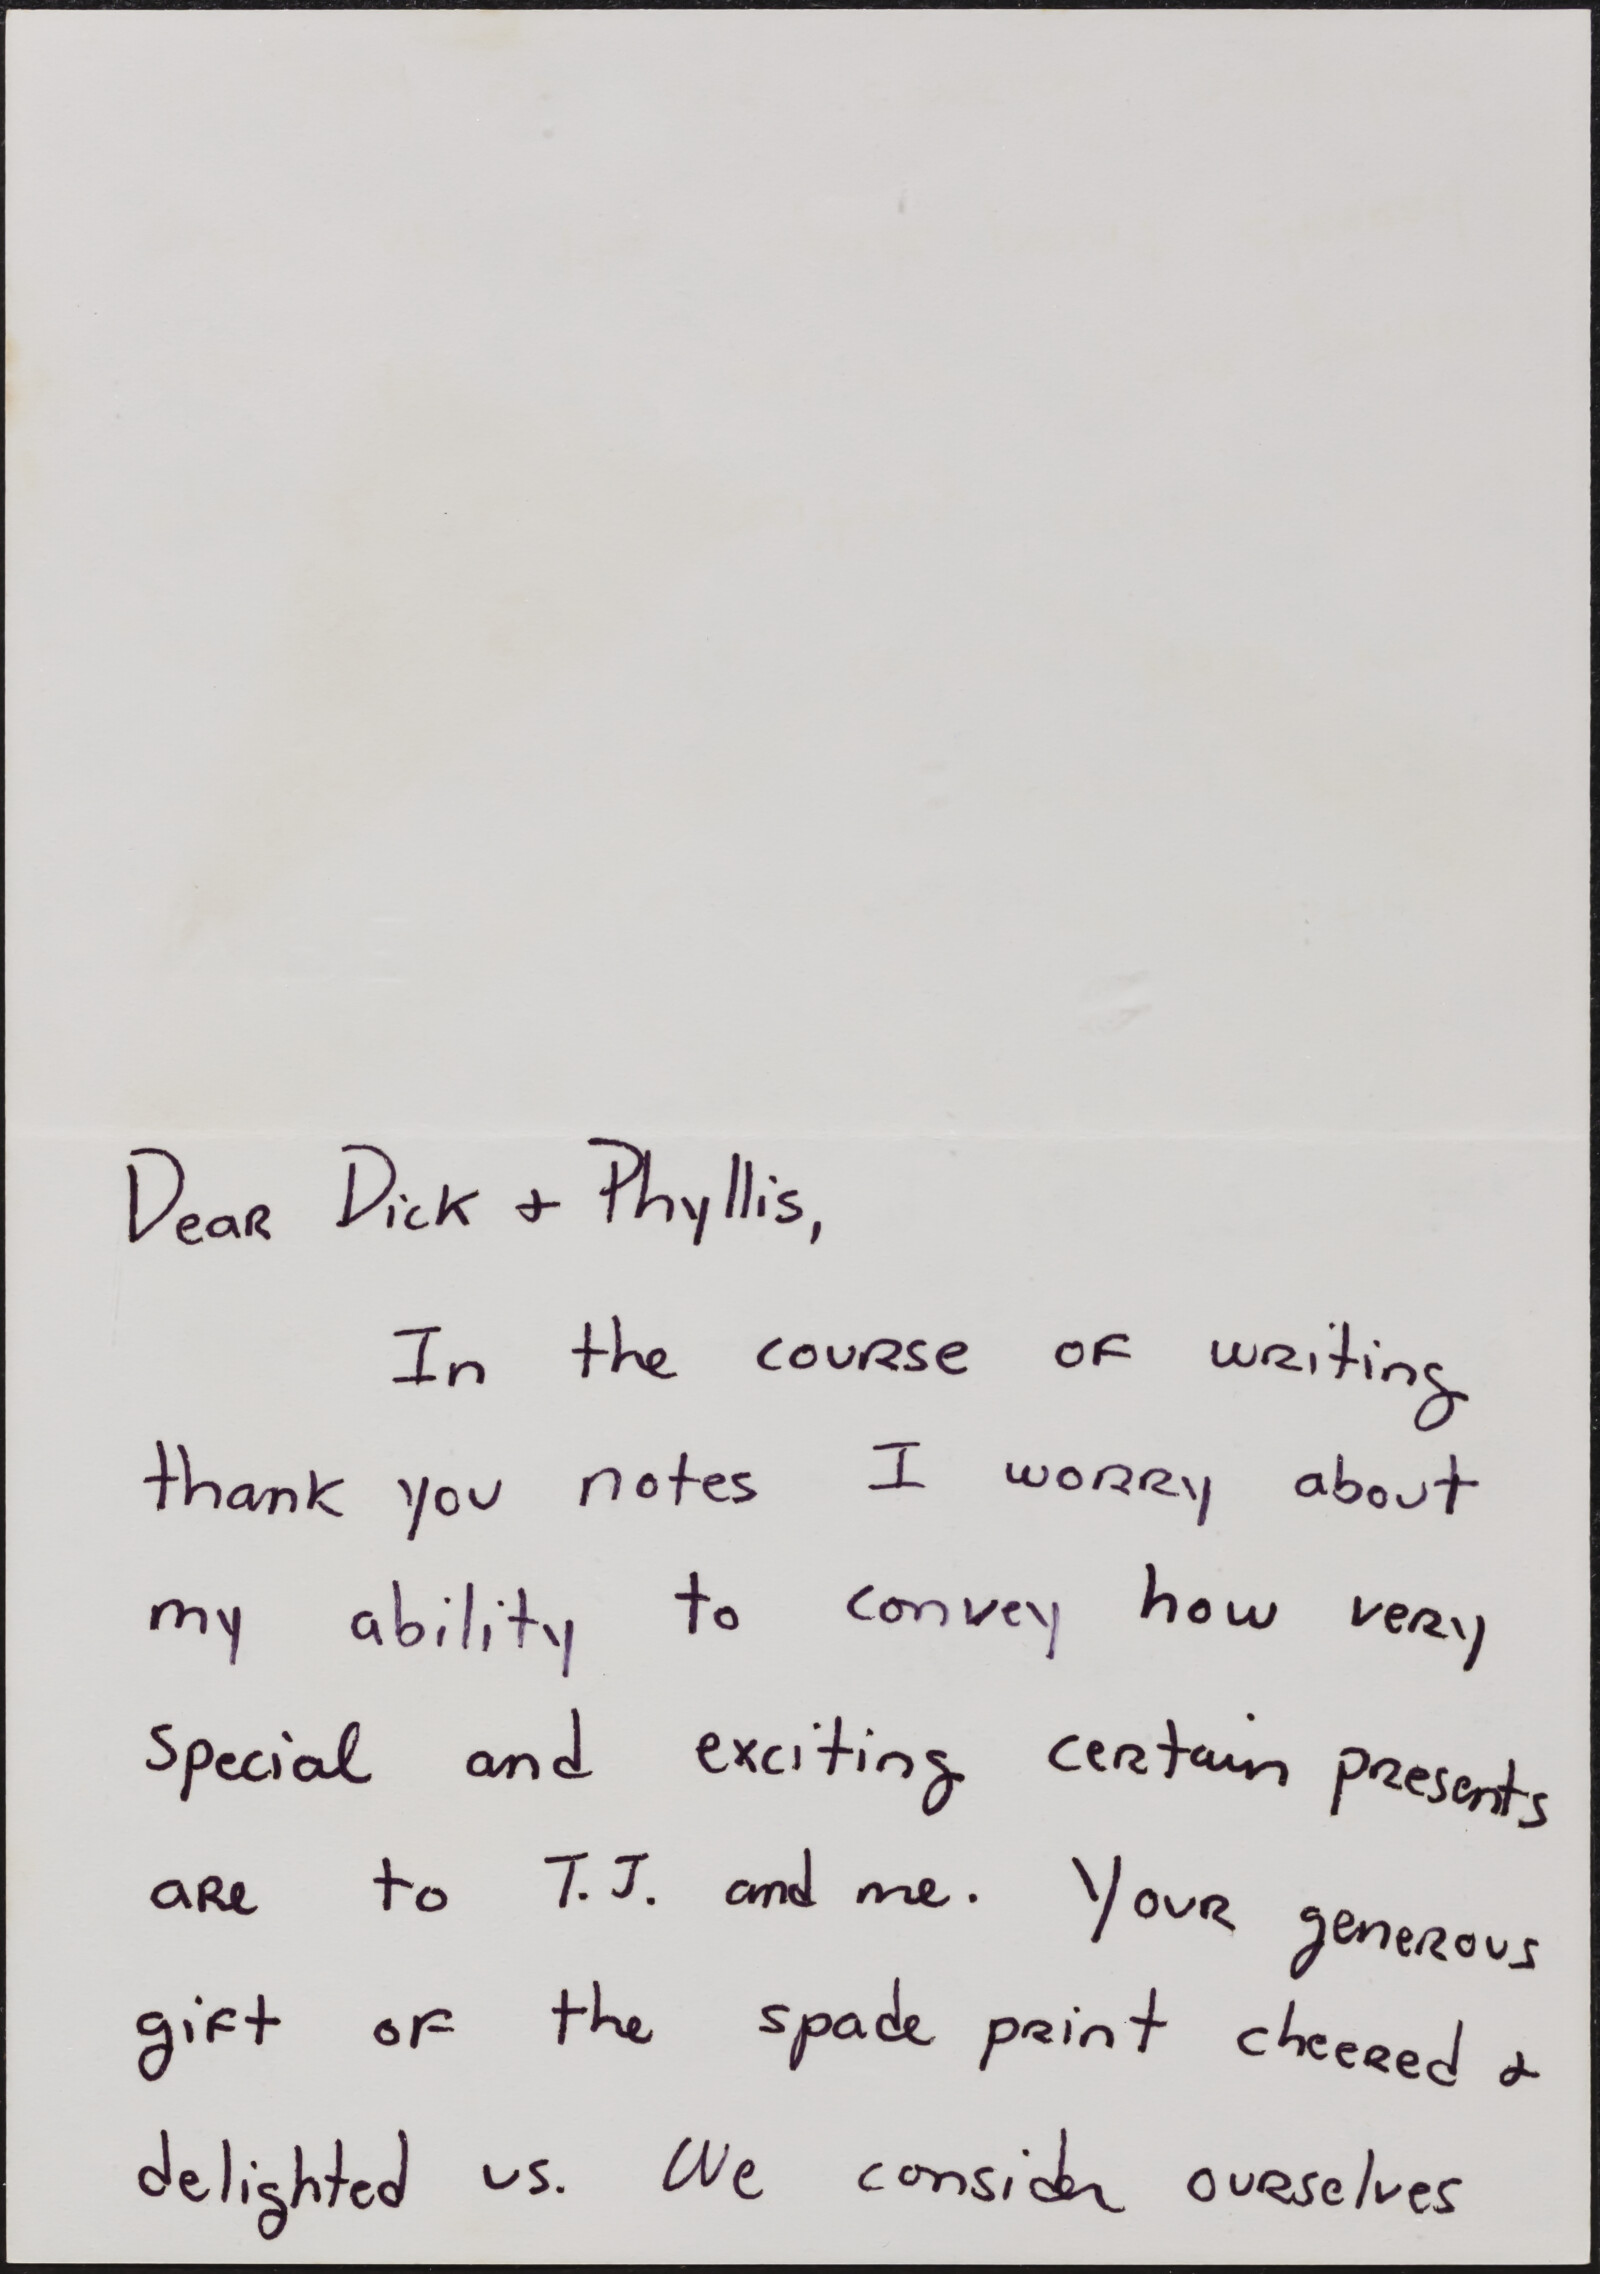 Dear Dick & Phyllis,
In the course of writing
thank you notes I worry about
my ability to convey how very
special and exciting certain presents
are to T.J. and me. Your generous
gift of the spade print cheered &
delighted us. We consider ourselves